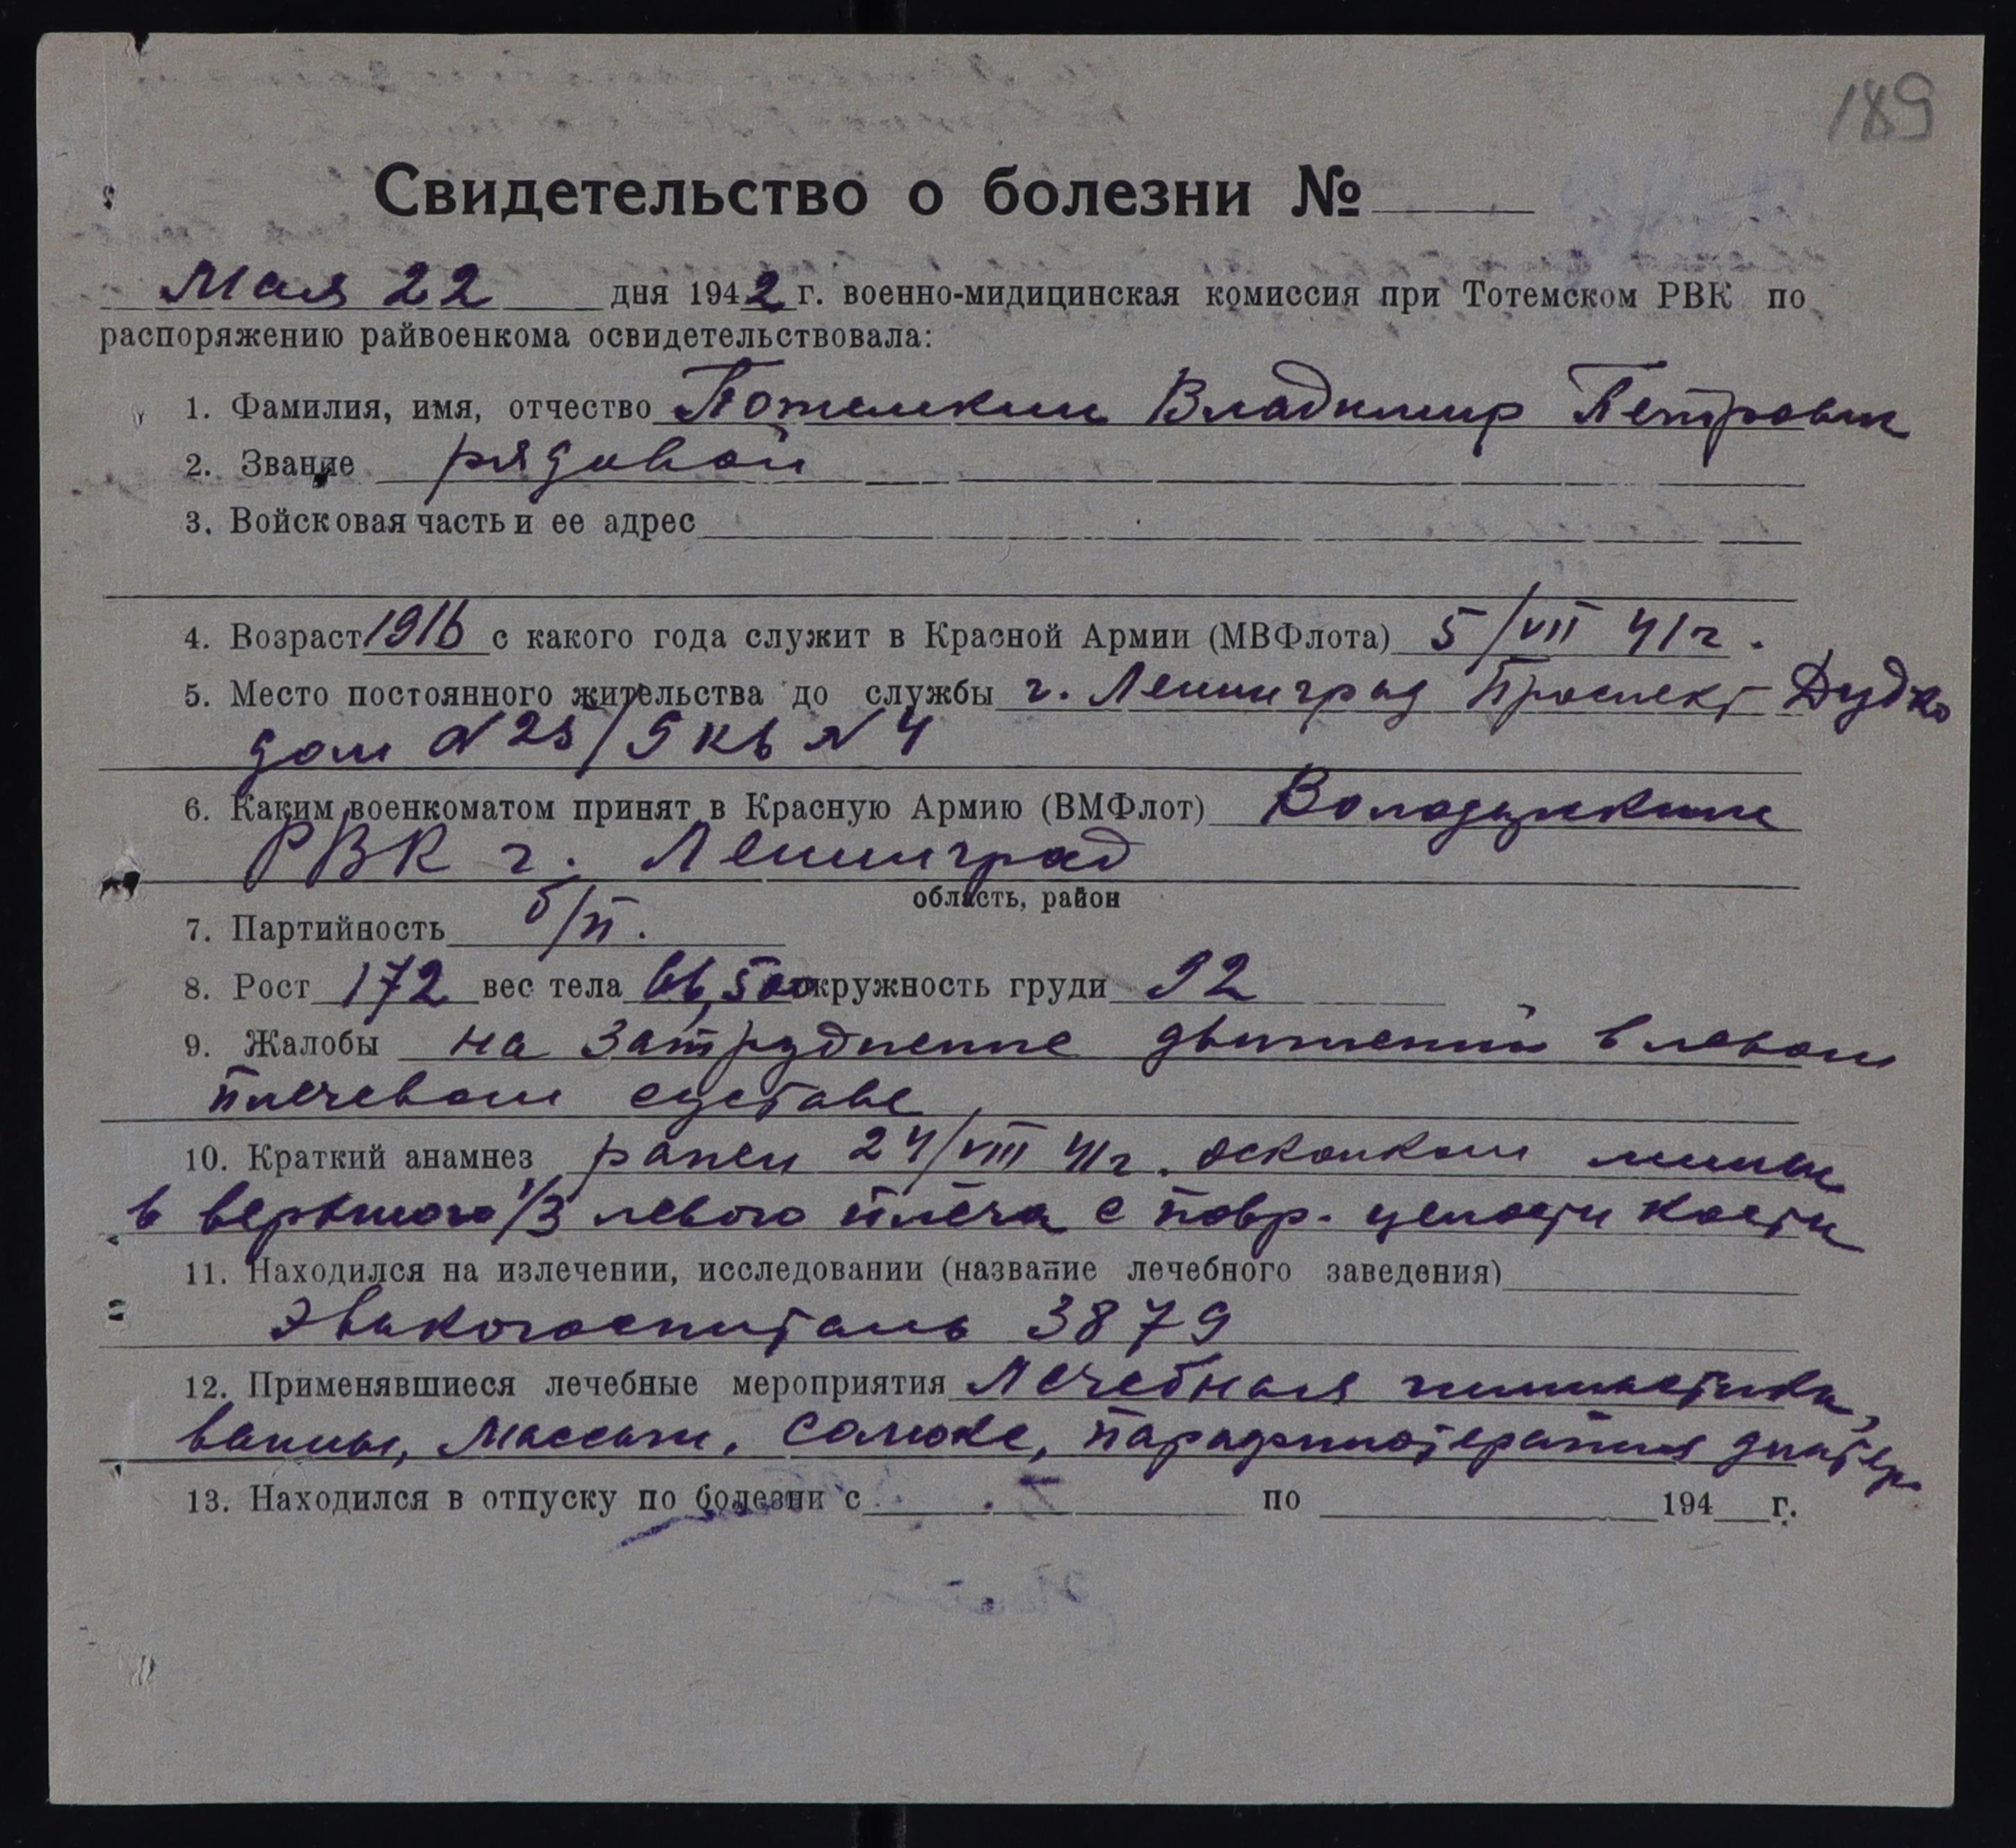 189
Свидетельство о болезни №
Мая 22 дня 1942 г. военно-мидицинская комиссия при Тотемском РВК по
распоряжению райвоенкома освидетельствовала:
1. Фамилия, имя, отчество Потемкин Владимир Петрович
2. Звание рядовой
3. Войсковая часть и ее адрес
4. Возраст 1916 с какого года служит в Красной Армии (МВФлота) 5/VII 41 г.
5. Место постоянного жительства до службы г. Ленинград Проспект Дудко
дом № 25/5 кв № 4
6. Каким военкоматом принят в Красную Армию (ВМФлот) Володарским
РВК г. Ленинград
область, район
7. Партийность б/п.
8. Рост 172 вес тела 66,500 окружность груди 92
9. Жалобы на затруднение движений в левом
плечевом суставе
10. Краткий анамнез ранен 24/VIII 41 г. осколком мины
в верхнюю 1/3 левого плеча с повр. целости кости
11. Находился на излечении, исследовании (название лечебного заведения)
Эвакогоспиталь 3879
12. Применявшиеся лечебные мероприятия Лечебная гимнастика,
ванны, массаж, солюкс, парафинотерапия диатер.
13. Находился в отпуску по болезни с по 194 г.